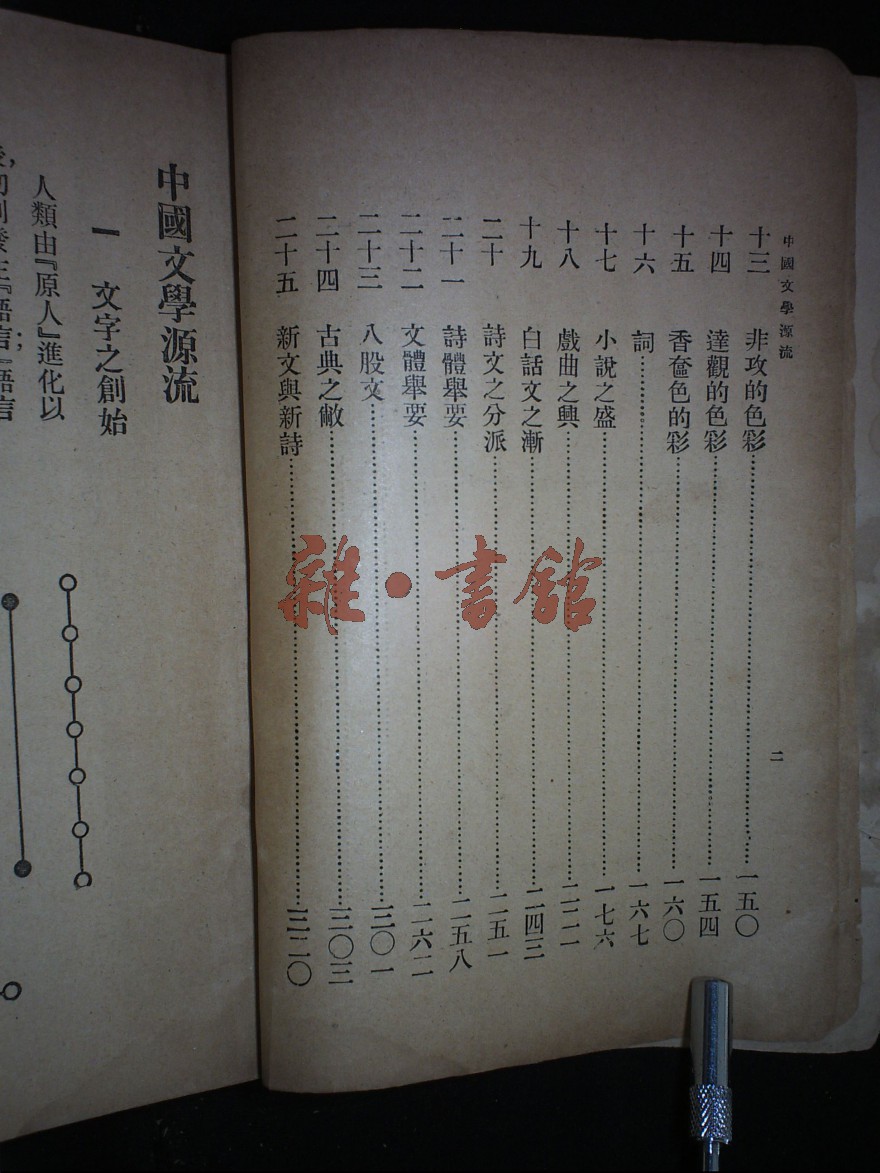 中國文學源流 二
十三 非攻的色彩 一五〇
十四 達觀的色彩 一五四
十五 香奩色的彩 一六〇
十六 詞 一六七
十七 小說之盛 一七六
十八 戲曲之興 二二一
十九 白話文之漸 二四三
二十 詩文之分派 二五一
二十一 詩體舉要 二五八
二十二 文體舉要 二六二
二十三 八股文 三〇一
二十四 古典之敝 三〇三
二十五 新文與新詩 三二〇
中國文學源流
一 文字之創始
人類由『原人』進化以
雜·書館